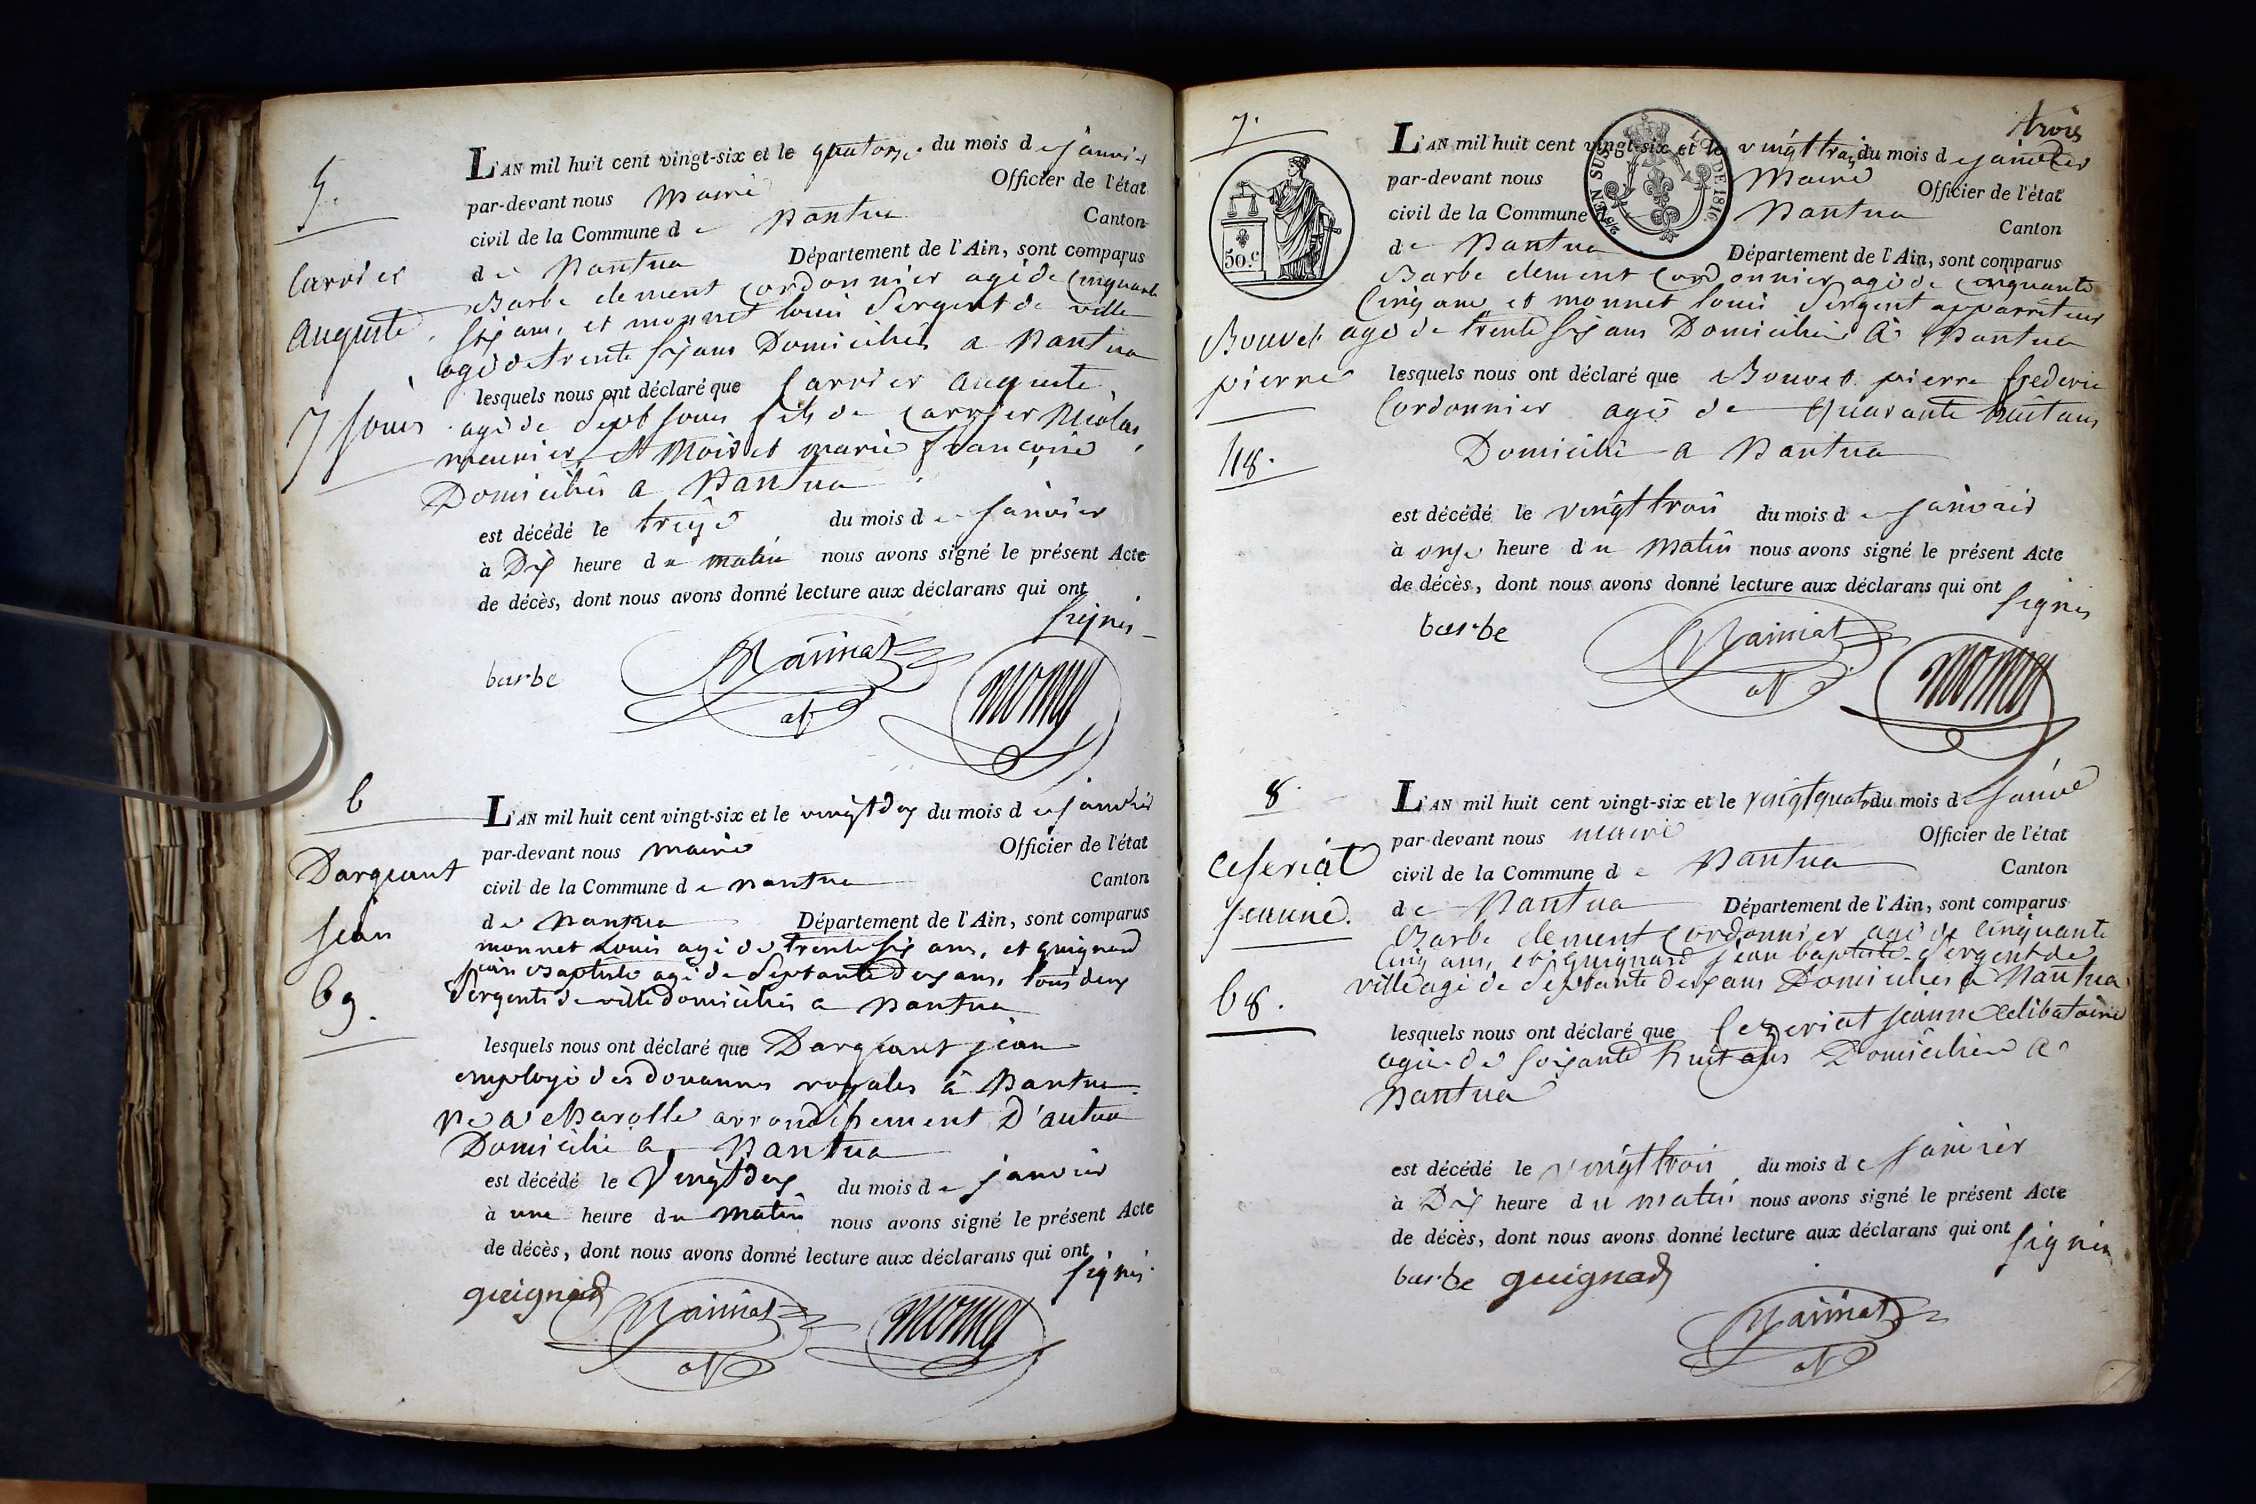 5.
Carrier
Auguste
7 jours
L'AN mil huit cent vingt-six et le quatorze du mois de janvier
par-devant nous Maire Officier de l'état
civil de la Commune de Nantua Canton
de Nantua Département de l'Ain, sont comparus
Barbe clement Cordonnier agé de Cinquante
six ans, et monnet louis Sergent de ville
agé de trente six ans Domiciliés a Nantua
lesquels nous ont déclaré que Carrier Auguste
agé de Sept jours fils de Carrier Nicolas,
meunier, et Moiret marie françoise
Domiciliés a Nantua
est décédé le treize du mois de janvier
à Dix heure du matin nous avons signé le présent Acte
de décès, dont nous avons donné lecture aux déclarans qui ont
signés
barbe
6
Dargeant
jean
69.
L'AN mil huit cent vingt-six et le vingtdeux du mois de janvier
par-devant nous maire Officier de l'état
civil de la Commune de nantua Canton
de Nantua Département de l'Ain, sont comparus
monnet Louis agé de trente six ans, et guignard
jean Baptiste agé de Septante deux ans, tous deux
Sergents de ville domiciliés a Nantua
lesquels nous ont déclaré que Dargeant jean
employé des douannes royales à Nantua
né a charolle arrondissement D'autun
Domicilié a Nantua
est décédé le Vingtdeux du mois de janvier
à une heure du Matin nous avons signé le présent Acte
de décès, dont nous avons donné lecture aux déclarans qui ont
signés.
guignard
7.
trois
SUS
LOI DE 1816
50.c
Bouvet
pierre
48.
L'AN mil huit cent vingt-six et le vingttrois du mois de janvier
par-devant nous Maire Officier de l'état
civil de la Commune Nantua Canton
de Nantua Département de l'Ain, sont comparus
Barbe clement Cordonnier agé de Cinquante
Cinq ans et monnet louis Sergent apparriteur
agé de trente six ans Domiciliés à Nantua
lesquels nous ont déclaré que Bouvet pierre frederic
Cordonnier agé de Quarante huit ans
Domicilié a Nantua
est décédé le vingttrois du mois de janvier
à onze heure du Matin nous avons signé le présent Acte
de décès, dont nous avons donné lecture aux déclarans qui ont
signés
barbe
8.
Ceseriat
jeanne.
68.
L'AN mil huit cent vingt-six et le vingtquatre du mois de janvier
par-devant nous maire Officier de l'état
civil de la Commune de Nantua Canton
de Nantua Département de l'Ain, sont comparus
Barbe clement Cordonnier agé de Cinquante
Cinq ans, et Guignard jean baptiste Sergent de
ville agé de Septante deux ans Domiciliés a Nantua
lesquels nous ont déclaré que Cezeriat jeanne Celibataire
agée de soixante huit ans Domiciliée a
Nantua
est décédé le vingttrois du mois de janvier
à Dix heure du matin nous avons signé le présent Acte
de décès, dont nous avons donné lecture aux déclarans qui ont
signés
barbe guignard